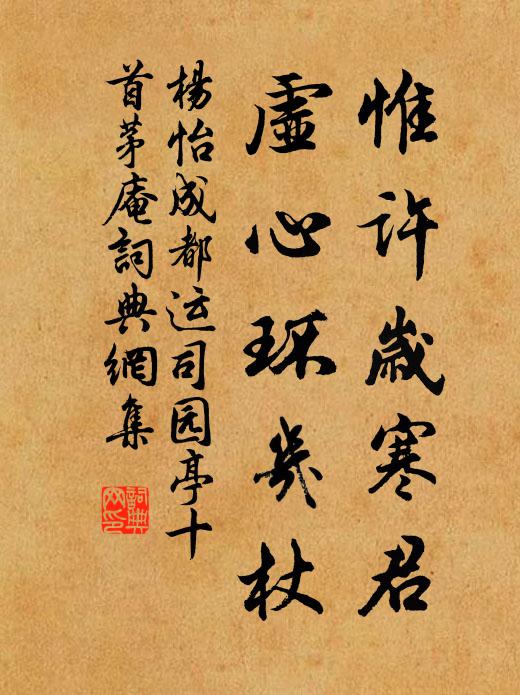 惟许岁寒君
虚心环几杖
楊怡成都运司园亭十
首茅庵詞典網集
詞典
网印